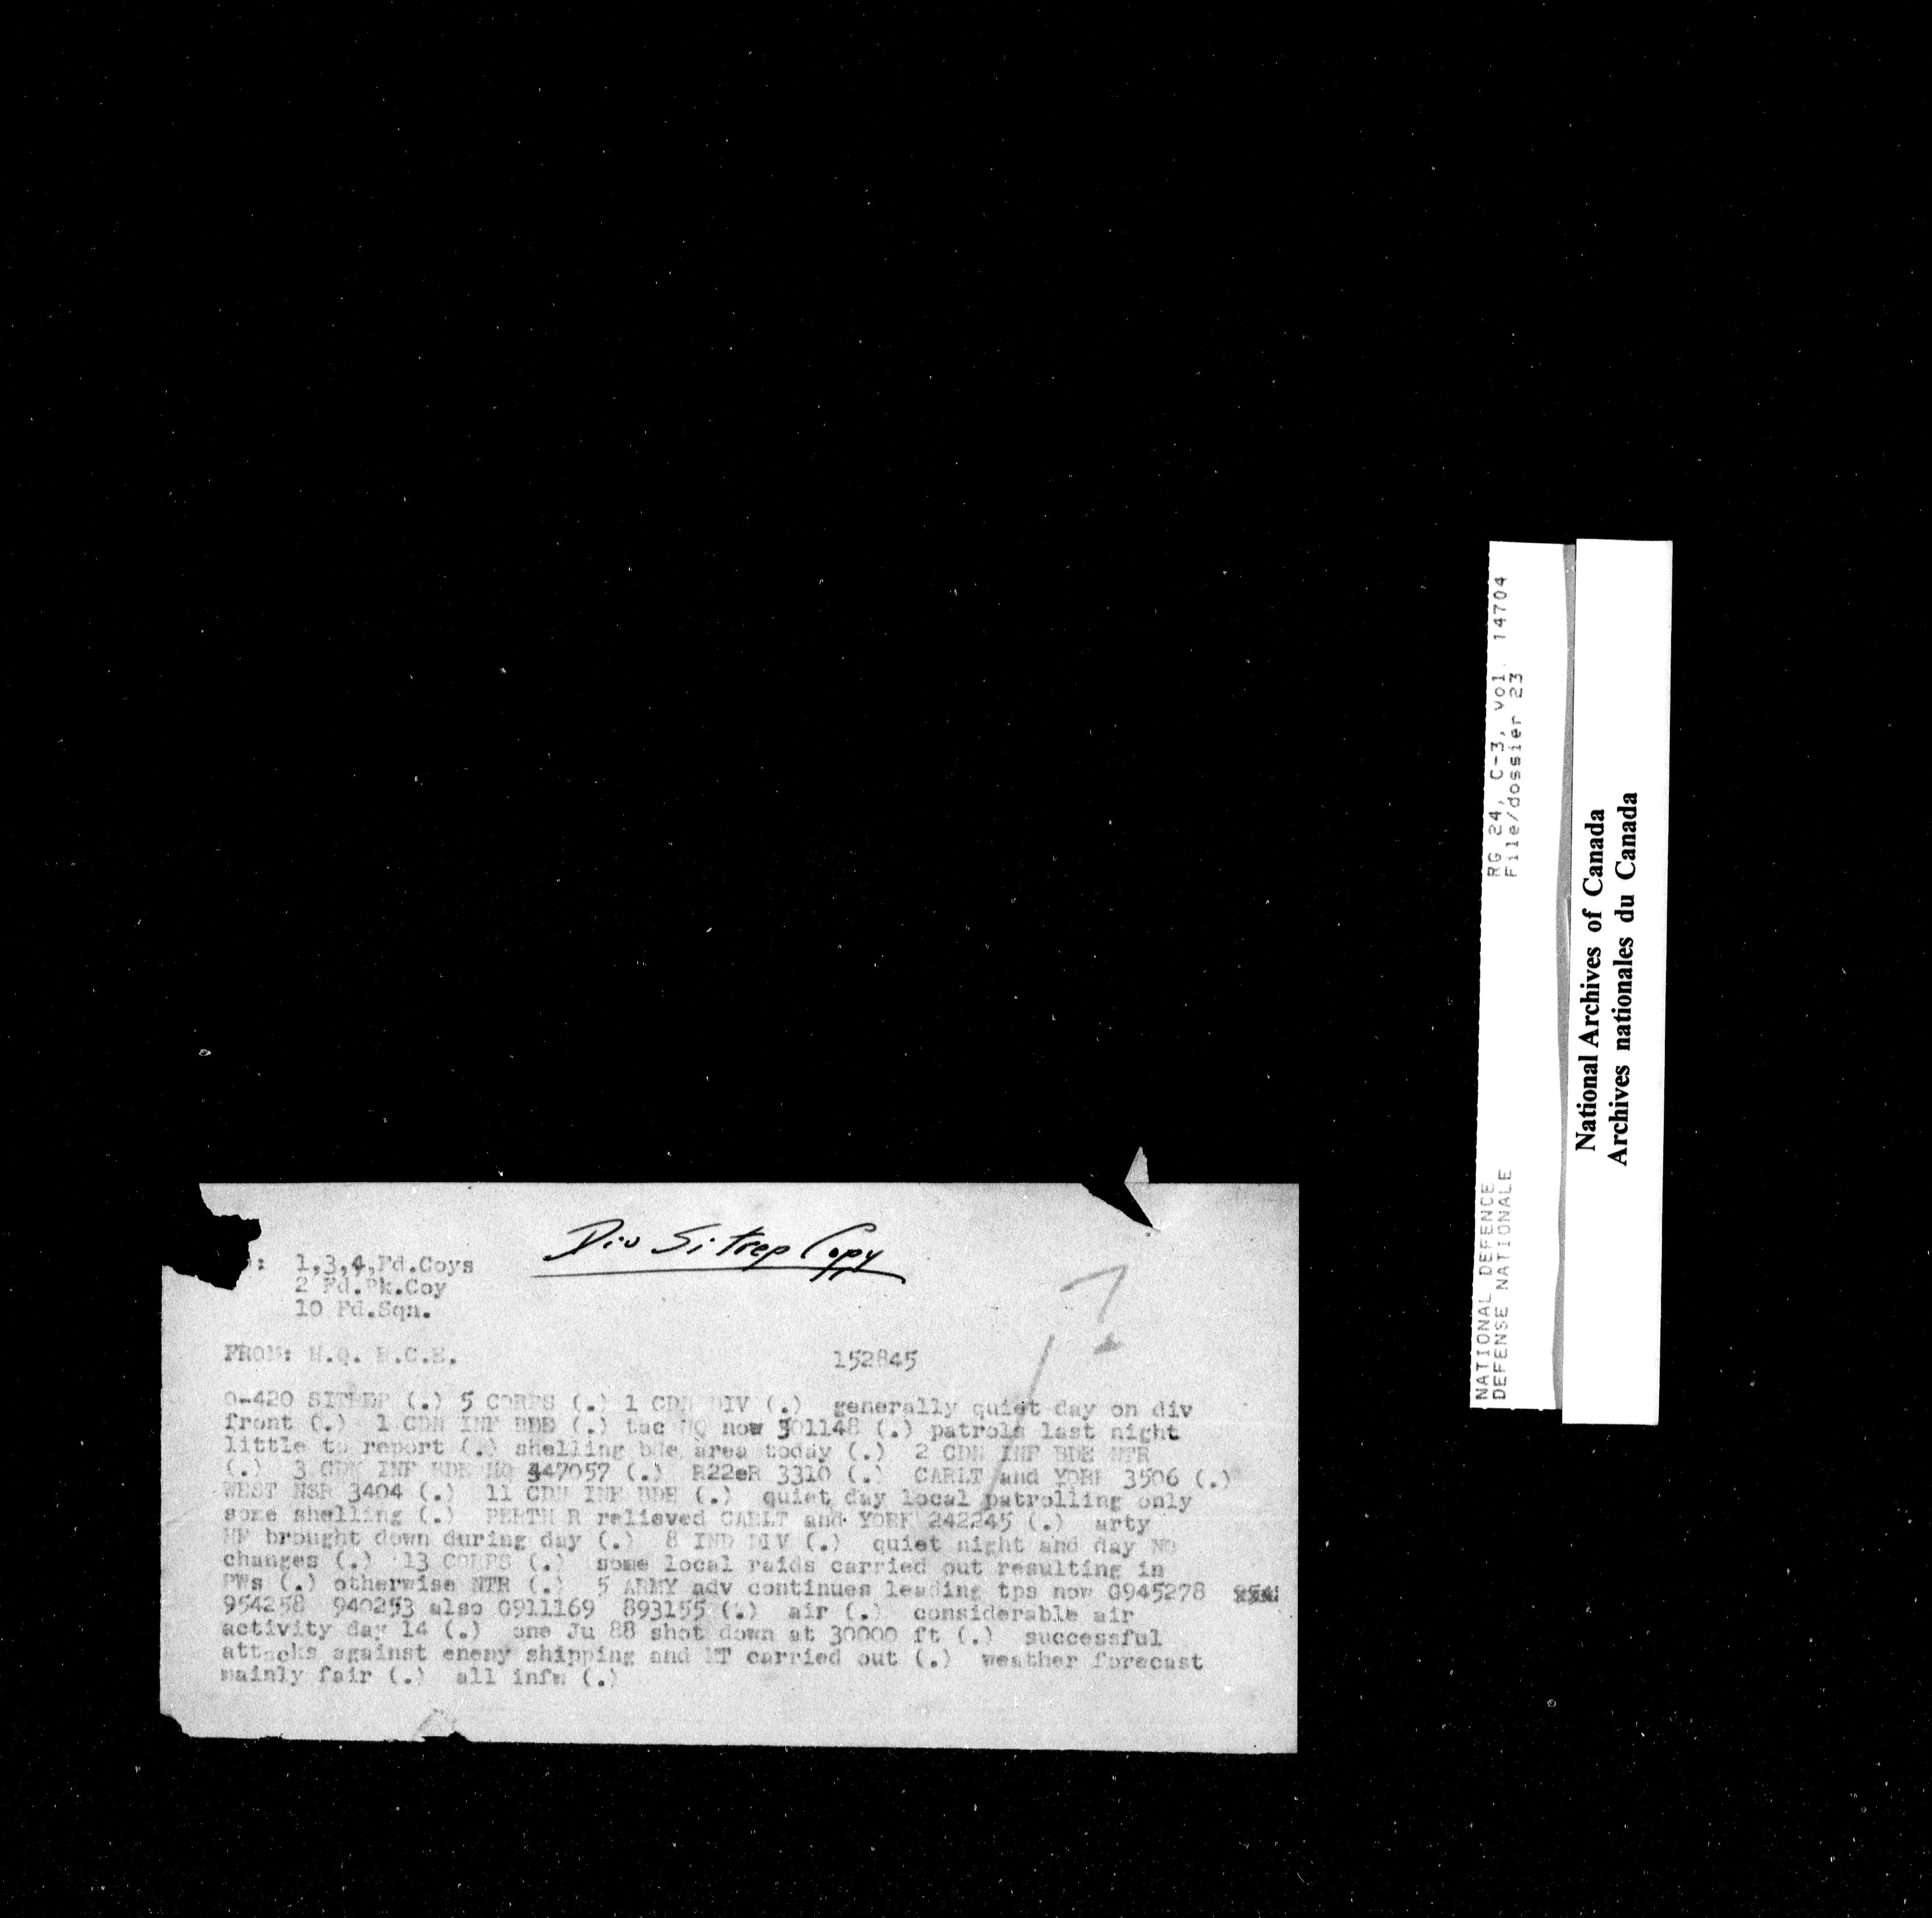 Div Sitrep Copy
: 1,3,4,Fd.Coys
2 Fd.Pk.Coy
10 Fd.Sqn.
FROM: H.Q. R.C.E. 152845
O-420 SITREP (.) 5 CORPS (.) 1 CDN DIV (.) generally quiet day on div
front (.) 1 CDN INF BDE (.) tac HQ now 301148 (.) patrols last night
little to report (.) shelling bde area today (.) 2 CDN INF BDE NTR
(.) 3 CDN INF BDE HQ 347057 (.) R22eR 3310 (.) CARLT and YORK 3506 (.)
WEST NSR 3404 (.) 11 CDN INF BDE (.) quiet day local patrolling only
some shelling (.) PERTH R relieved CARLT and YORK 242245 (.) arty
HF brought down during day (.) 8 IND DIV (.) quiet night and day NO
changes (.) 13 CORPS (.) some local raids carried out resulting in
PWs (.) otherwise NTR (.) 5 ARMY adv continues leading tps now G945278
954258 940253 also G911169 893155 (.) air (.) considerable air
activity day 14 (.) one Ju 88 shot down at 30000 ft (.) successful
attacks against enemy shipping and MT carried out (.) weather forecast
mainly fair (.) all infm (.)
NATIONAL DEFENCE RG 24, C-3, vol. 14704
DEFENSE NATIONALE File/dossier 23
National Archives of Canada
Archives nationales du Canada